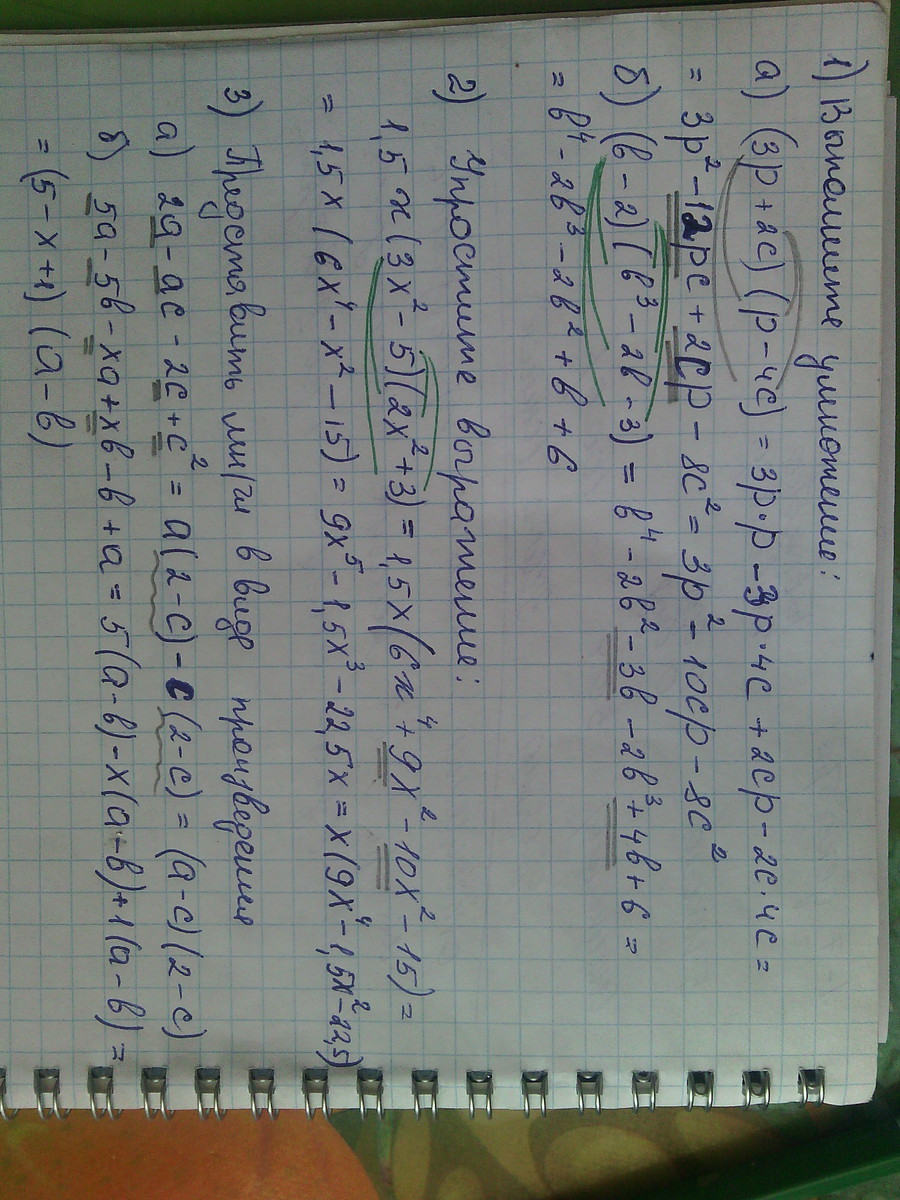 1) Выполните умножение:
а) (3p+2c)(p-4c)=3p·p-3p·4c+2cp-2c·4c=
=3p²-12pc+2cp-8c²=3p²-10cp-8c²
б) (b-2)(b³-2b-3)=b⁴-2b²-3b-2b³+4b+6=
=b⁴-2b³-2b²+b+6
2) Упростите выражение:
1,5x(3x²-5)(2x²+3)=1,5x(6x⁴+9x²-10x²-15)=
=1,5x(6x⁴-x²-15)=9x⁵-1,5x³-22,5x=x(9x⁴-1,5x²-22,5)
3) Предоставить мн/чл в виде произведения
а) 2a-ac-2c+c²=a(2-c)-c(2-c)=(a-c)(2-c)
б) 5a-5b-xa+xb-b+a=5(a-b)-x(a-b)+1(a-b)=
=(5-x+1)(a-b)